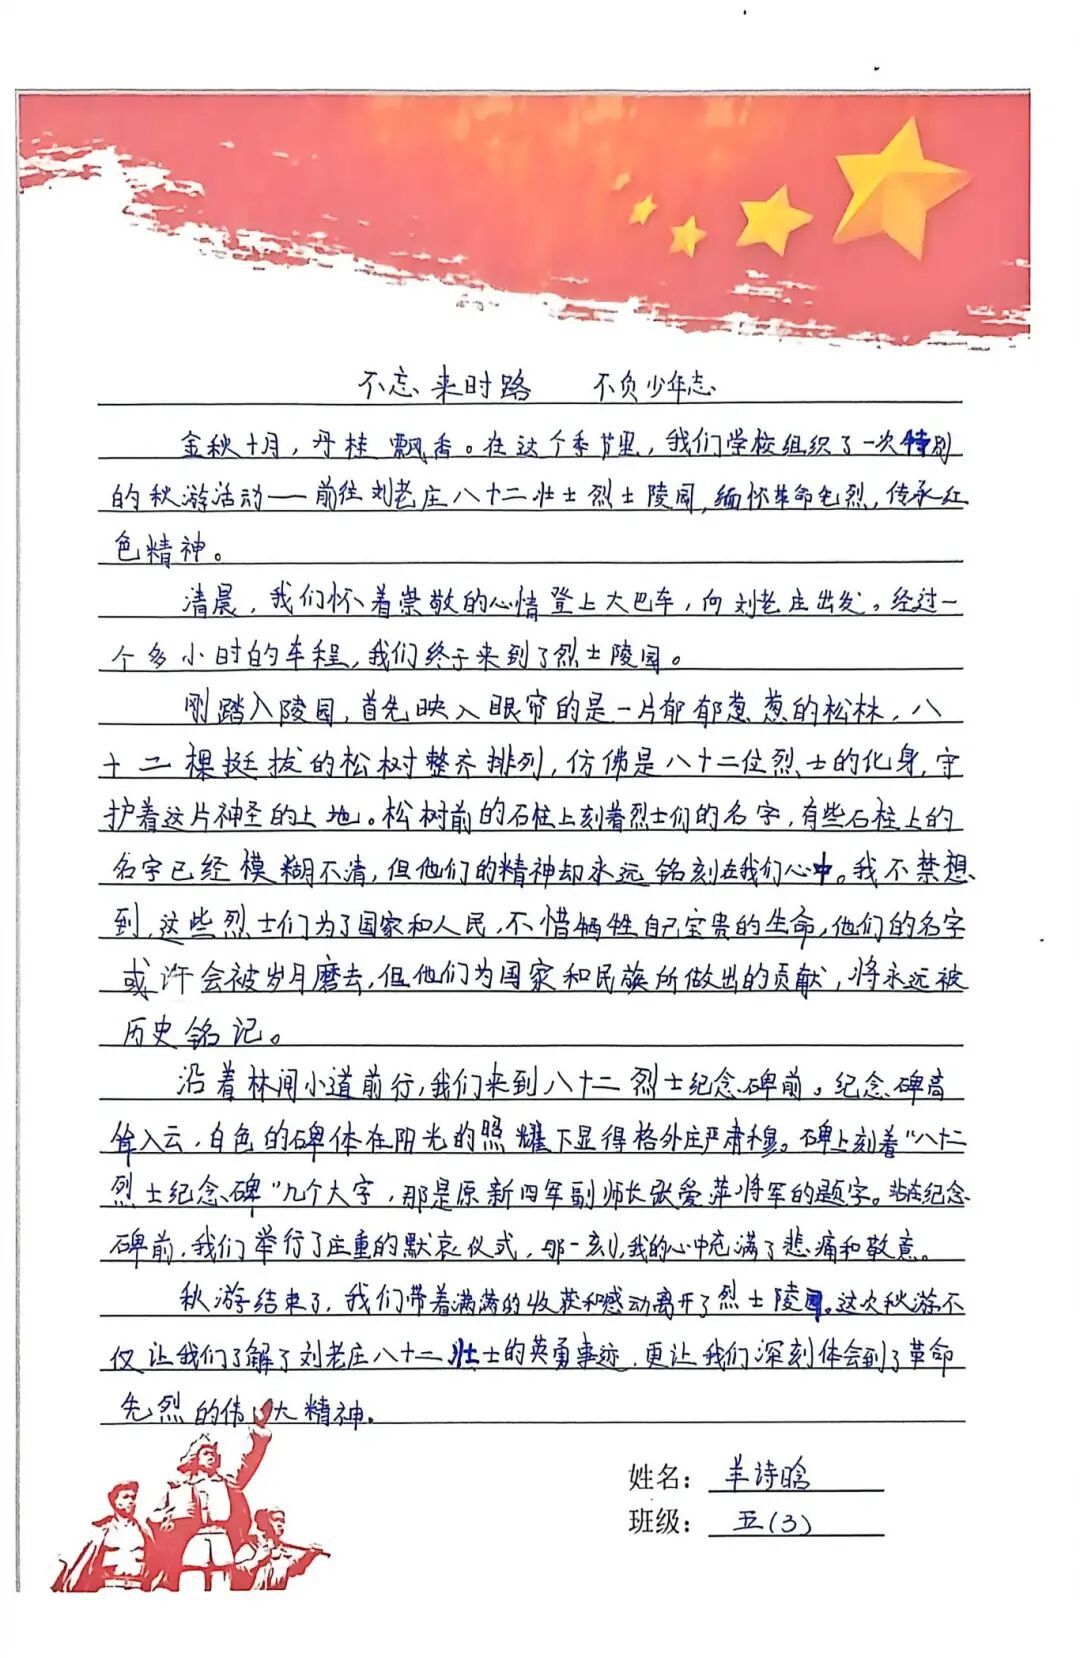 不忘来时路 不负少年志
金秋十月，丹桂飘香。在这个季节里，我们学校组织了一次特别
的秋游活动——前往刘老庄八十二壮士烈士陵园，缅怀革命先烈，传承红
色精神。
清晨，我们怀着崇敬的心情登上大巴车，向刘老庄出发。经过一
个多小时的车程，我们终于来到了烈士陵园。
刚踏入陵园，首先映入眼帘的是一片郁郁葱葱的松林，八
十二棵挺拔的松树整齐排列，仿佛是八十二位烈士的化身，守
护着这片神圣的土地。松树前的石柱上刻着烈士们的名字，有些石柱上的
名字已经模糊不清，但他们的精神却永远铭刻在我们心中。我不禁想
到，这些烈士们为了国家和人民，不惜牺牲自己宝贵的生命，他们的名字
或许会被岁月磨去，但他们为国家和民族所做出的贡献，将永远被
历史铭记。
沿着林间小道前行，我们来到八十二烈士纪念碑前。纪念碑高
耸入云，白色的碑体在阳光的照耀下显得格外庄严肃穆。碑上刻着“八十二
烈士纪念碑”九个大字，那是原新四军副师长张爱萍将军的题字。站在纪念
碑前，我们举行了庄重的默哀仪式，那一刻，我的心中充满了悲痛和敬意。
秋游结束了，我们带着满满的收获和感动离开了烈士陵园。这次秋游不
仅让我们了解了刘老庄八十二壮士的英勇事迹，更让我们深刻体会到了革命
先烈的伟大精神。
姓名：羊诗晗
班级：五(3)